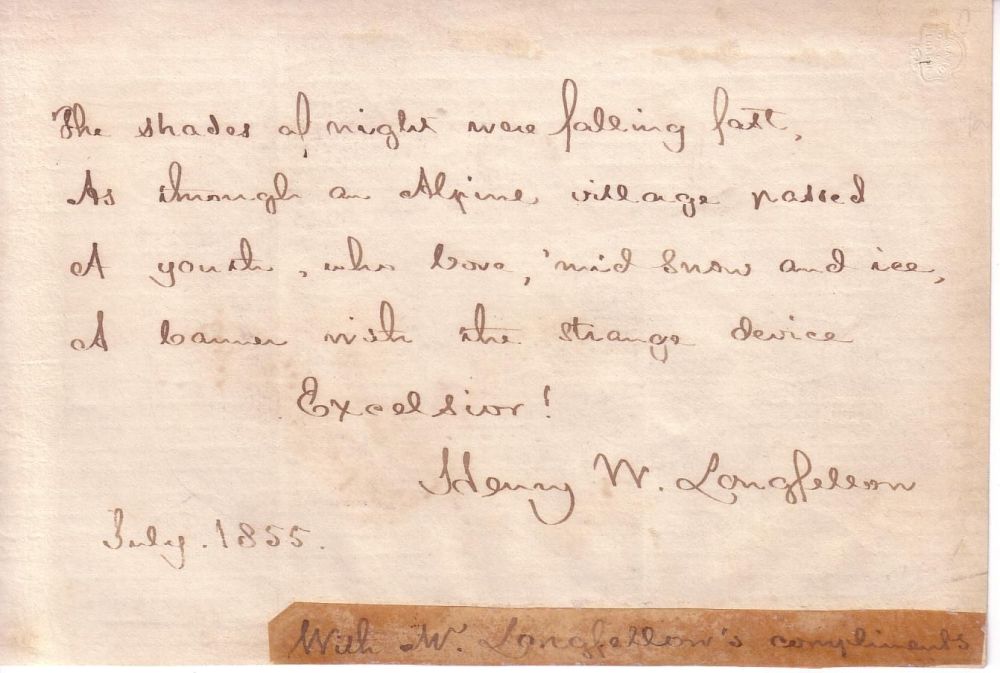 The shades of night were falling fast,
As through an Alpine village passed
A youth, who bore, 'mid snow and ice,
A banner with the strange device
Excelsior!
Henry W. Longfellow
July. 1855.
With Mr. Longfellow's compliments